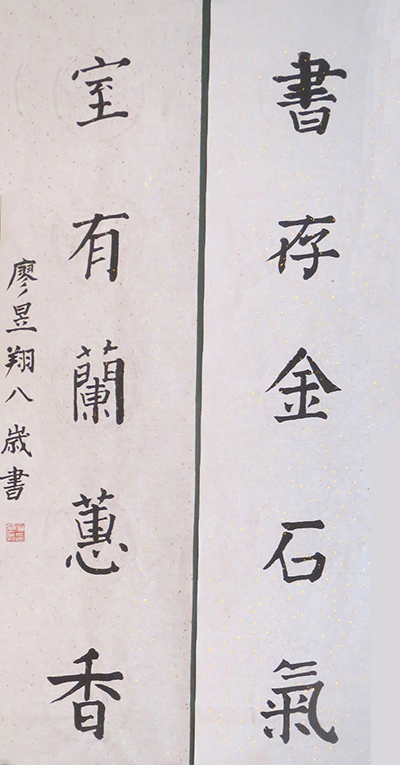 書存金石氣
室有蘭蕙香
廖昱翔八歲書